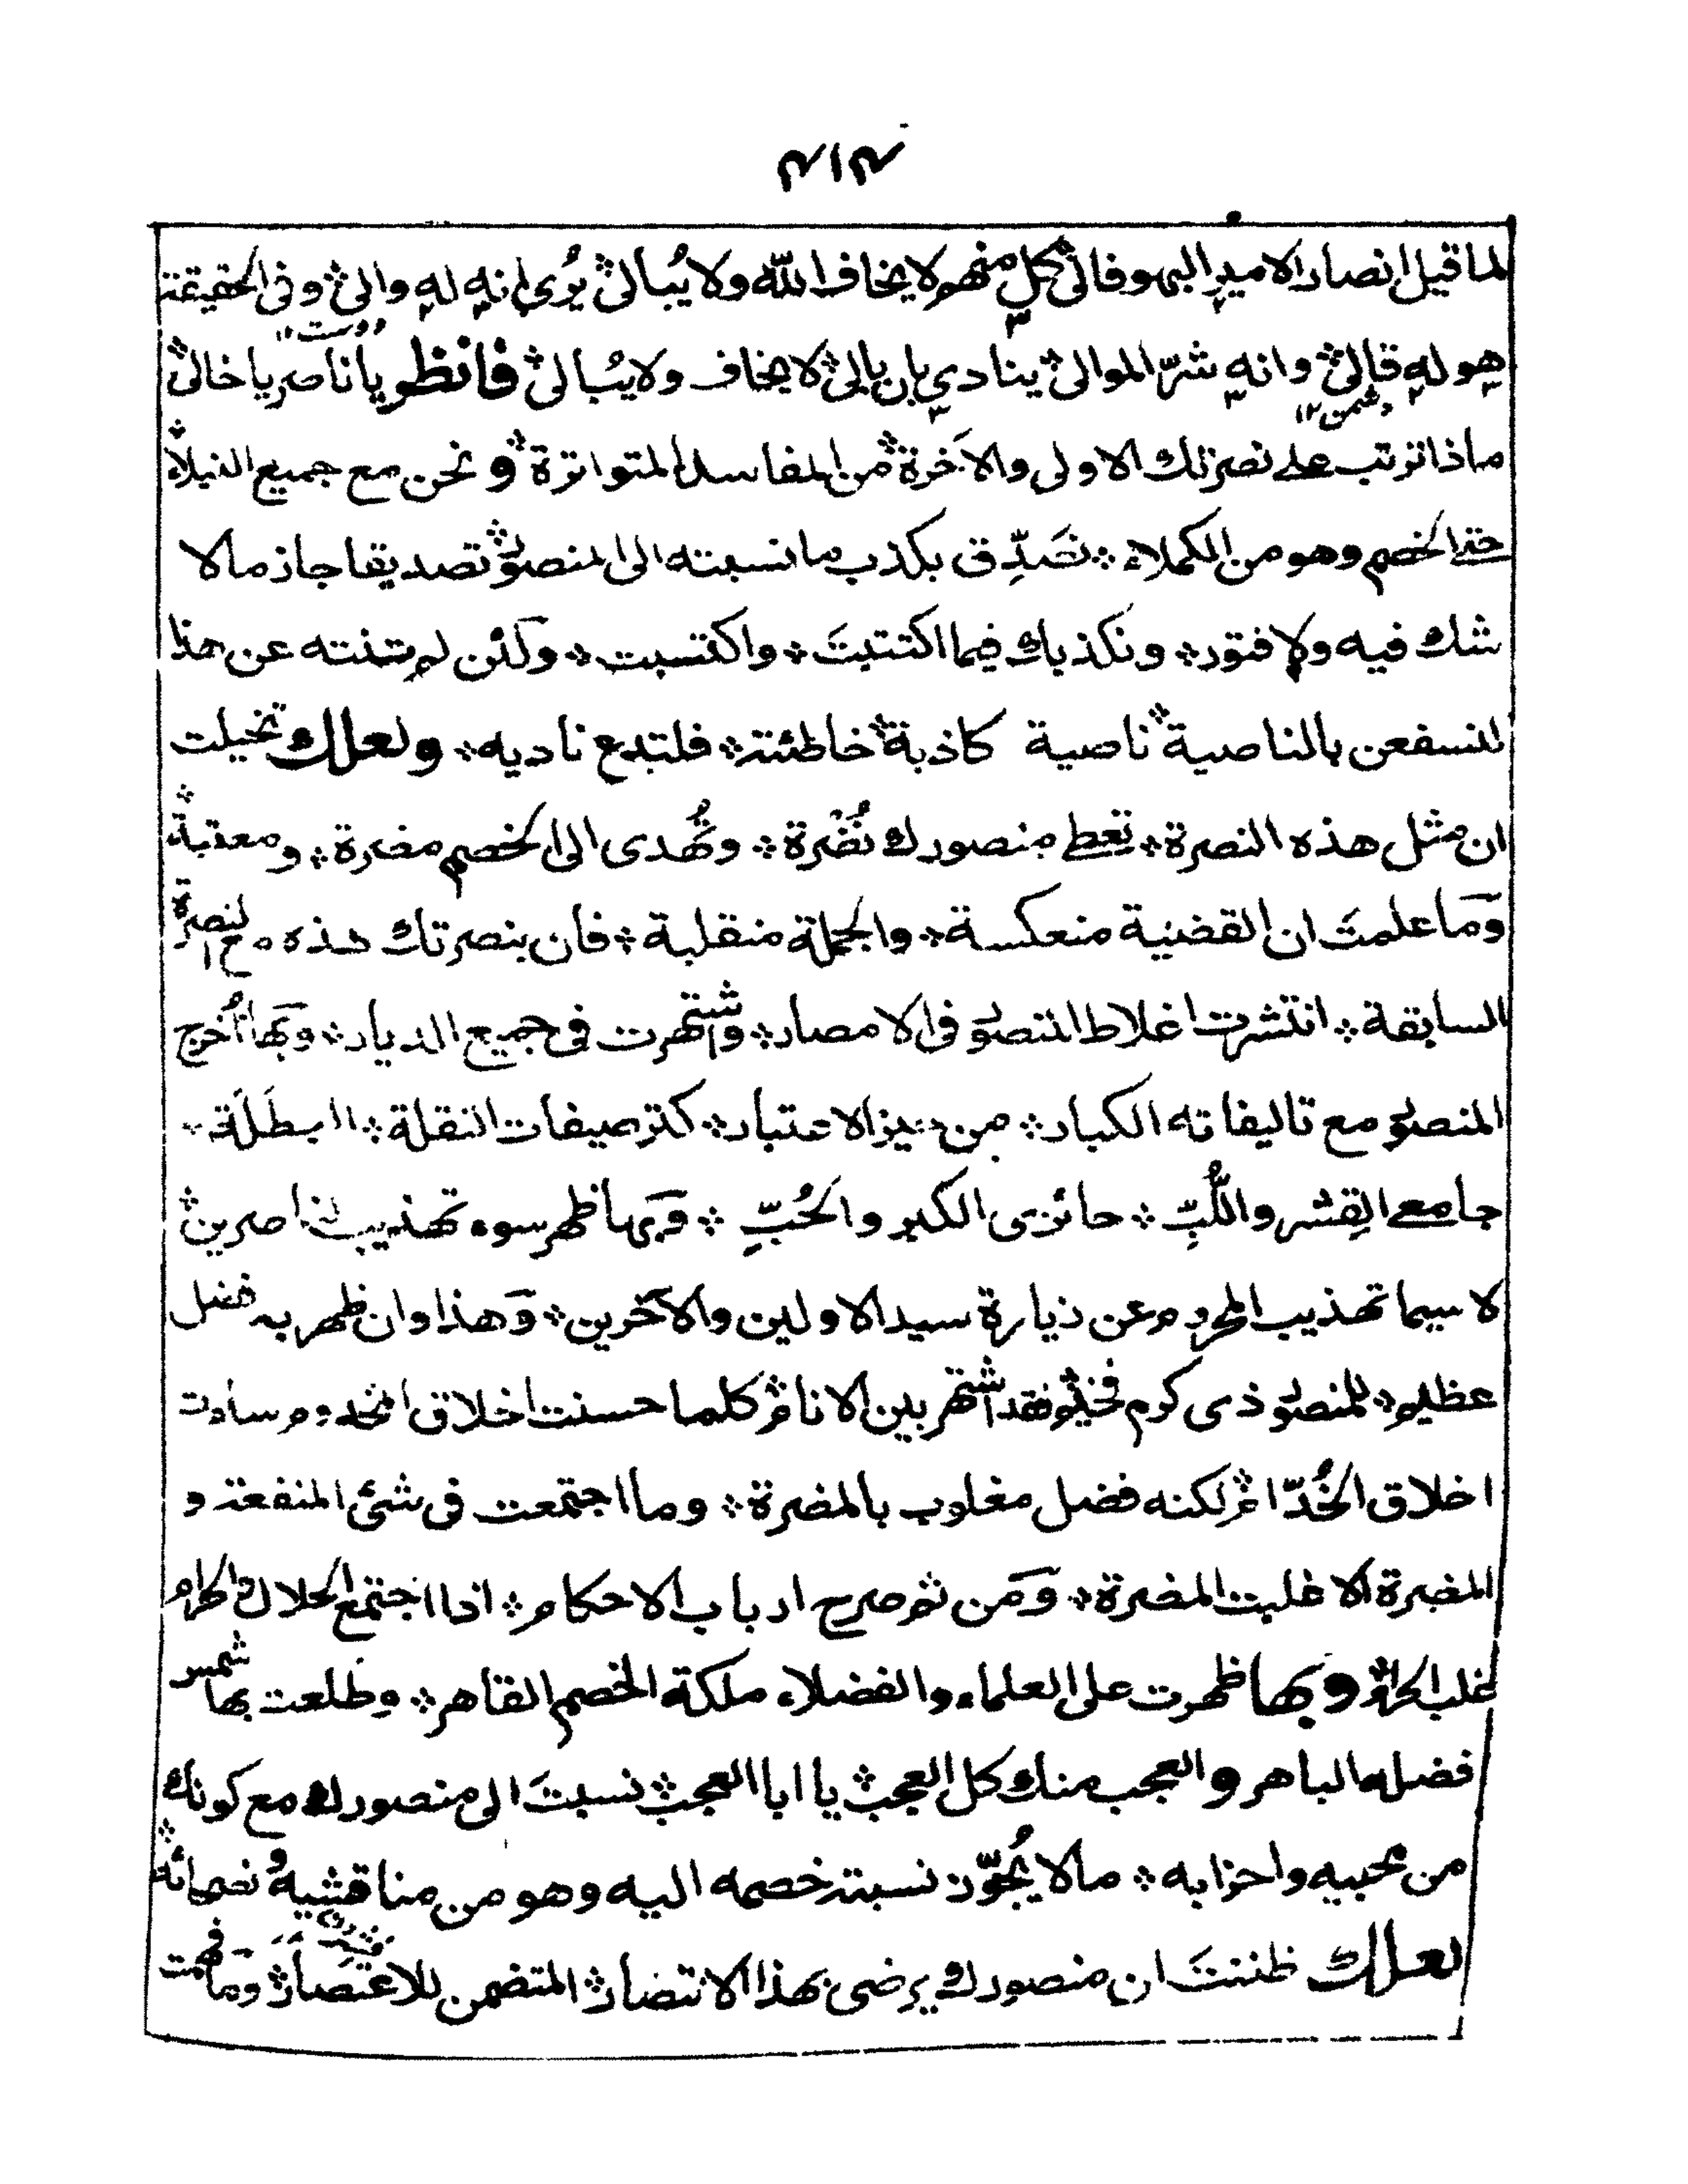 ٣١٣
لما قيل انصار الامير البهوفالى ۞ كل منهم لا يخاف الله ولا يُبالى ۞ يُرى انه له والى ۞ وفى الحقيقة
دوست ۱۲
هو له قالى ۞ وانه شرّ الموالى ۞ ينادى بان بالى ۞ لا يخاف ولا يبالى ۞ فانظر يا ناصر يا خالى ۞
دشمن ۱۲
ماذا ترتب على نصرتك الاولى والآخرة ۞ من المفاسد المتواترة ۞ ونحن مع جميع النبلاء ۞
حتى الخصم وهو من الكملاء ۞ نصَدِّق بكذب ما نسبته الى المنصور ۞ تصديقا جازما لا
شك فيه ولا فتور ۞ ونكذبك فيما اكتتبتَ ۞ واكتسبت ۞ ولئن لم تنته عن هذا
لنسفعن بالناصية ۞ ناصية كاذبة ۞ خاطئة ۞ فلتدع ناديه ۞ ولعلك تخيلت
ان مثل هذه النصرة ۞ تعطى منصورك نُضْرة ۞ وتُهدى الى الخصم مضرة ۞ ومعتبة ۞
وَما علمتَ ان القضية منعكسة ۞ والجملة منقلبة ۞ فان بنصرتك هذه مع النصرة
السابقة ۞ انتشرت اغلاط المنصور فى الامصار ۞ واشتهرت فى جميع الديار ۞ وبها أُخرج
المنصور مع تاليفاته الكبار ۞ من حيز الاعتبار ۞ كترصيفات النقلة ۞ البطَلَة ۞
جامعى القِشر واللُّبِّ ۞ حائزى الكبر والحُبِّ ۞ وَبها ظهر سوء تهذيب الناصرين ۞
لا سيما تهذيب المحروم عن زيارة سيد الاولين والآخرين ۞ وَهذا وان ظهر به فضل
عظيم ۞ للمنصور ذى كرم فخيم ۞ فقد اشتهر بين الانام ۞ كلما حسنت اخلاق المخدوم ساءت
اخلاق الخُدّام ۞ لكنه فضل مغلوب بالمضرة ۞ وما اجتمعت فى شئ المنفعة و
المضرة الا غلبت المضرة ۞ وَمن ثم صرح ارباب الاحكام ۞ اذا اجتمع الحلال والحرام
غلب الحرام ۞ وبها ظهرت على العلماء والفضلاء ملكة الخصم القاهر ۞ وطلعت بها شمس
فضله الباهر والعجب منك كل العجب ۞ يا ابا العجب ۞ نسبتَ الى منصورك مع كونك
من محبيه واحزابه ۞ ما لا يُجوّز نسبته خصمه اليه وهو من مناقشيه ونصحائه ۞
لعلك ظننتَ ان منصورك يرضى بهذا الانتصار ۞ المتضمن للاعتصار ۞ وما فهمت